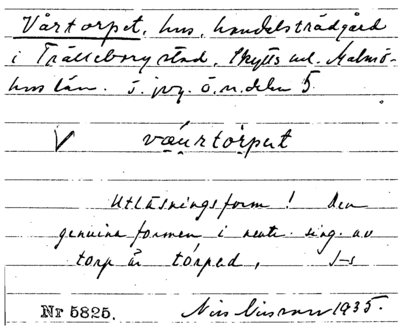 Vårtorpet, hus, handelsträdgård
i Trälleborg stad, Skytts hd. Malmö-
hus län. S. jvg. ö. n. delen 5.
V væu̯rtòrput
Utläsningsform! Den
genuina formen i neutr. sing. av
torp är tórped, J-s
Nr 5825. 1935.